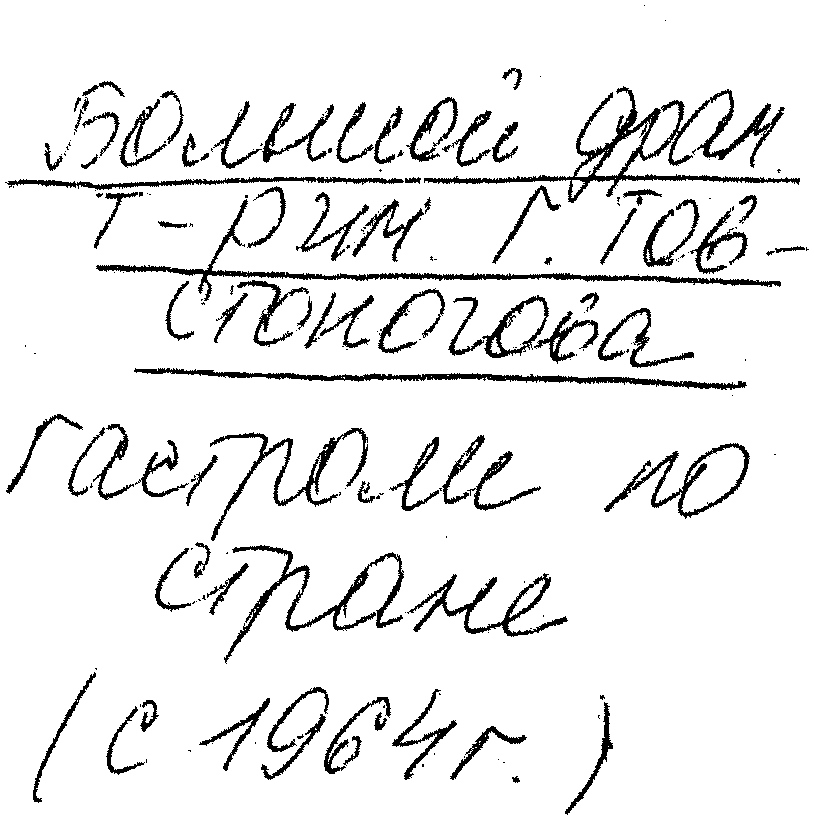 Большой драм.
т-р им. Г. Тов-
стоногова
Гастроли по
стране
(с 1964г.)